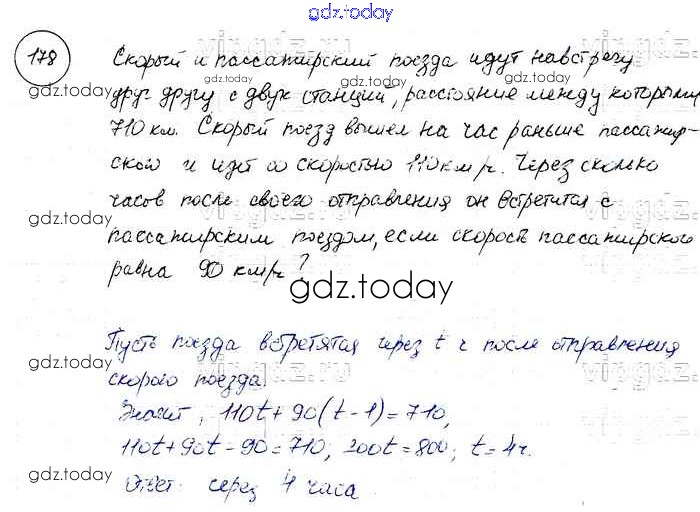 gdz.today
178
Скорый и пассажирский поезда идут навстречу
друг другу с двух станций, расстояние между которыми
710 км. Скорый поезд вышел на час раньше пассажир-
ской и идет со скоростью 110 км/ч. Через сколько
часов после своего отправления он встретится с
пассажирским поездом, если скорость пассажирского
равна 90 км/ч?
Пусть поезда встретятся через t ч после отправления
скорого поезда.
Значит, 110t + 90(t - 1) = 710,
110t + 90t - 90 = 710; 200t = 800; t = 4ч.
Ответ: через 4 часа
gdz.today
gdz.today
gdz.today
gdz.today
gdz.today
gdz.today
gdz.today
gdz.today
gdz.today
gdz.today